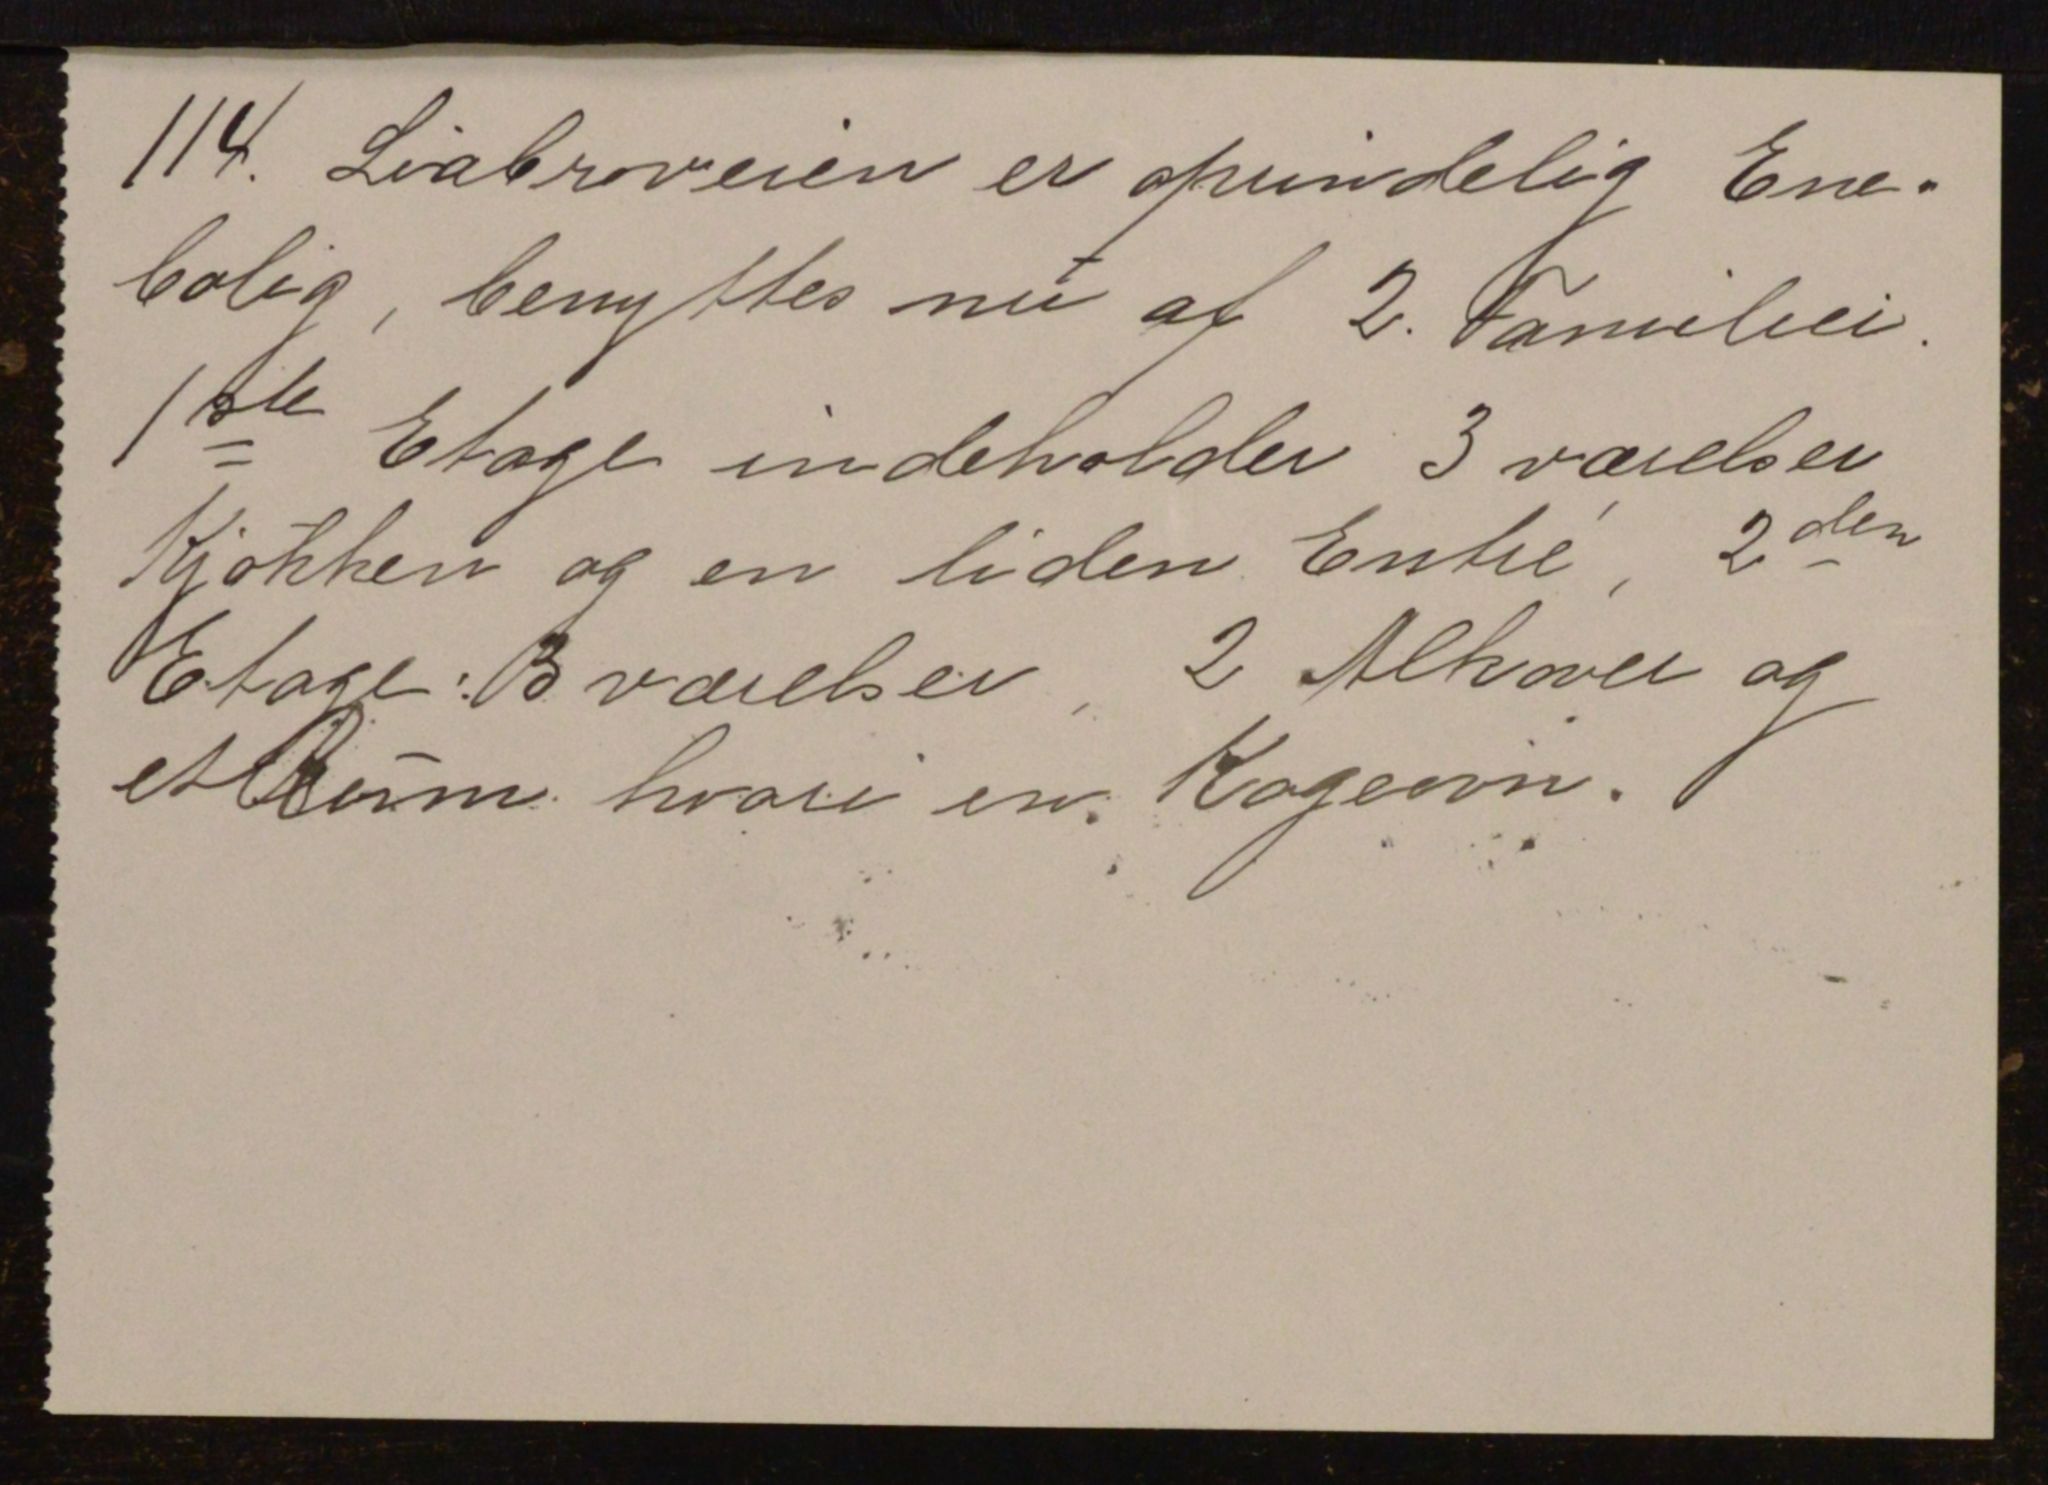 114. Liabroveien er oprindelig Ene-
bolig, benyttes nu af 2. Familier.
1ste Etage indeholder 3 værelser
Kjökken og en liden Entré, 2den
Etage: 3 værelser, 2 Alkover og
et Rum hvori en Kogeovn.